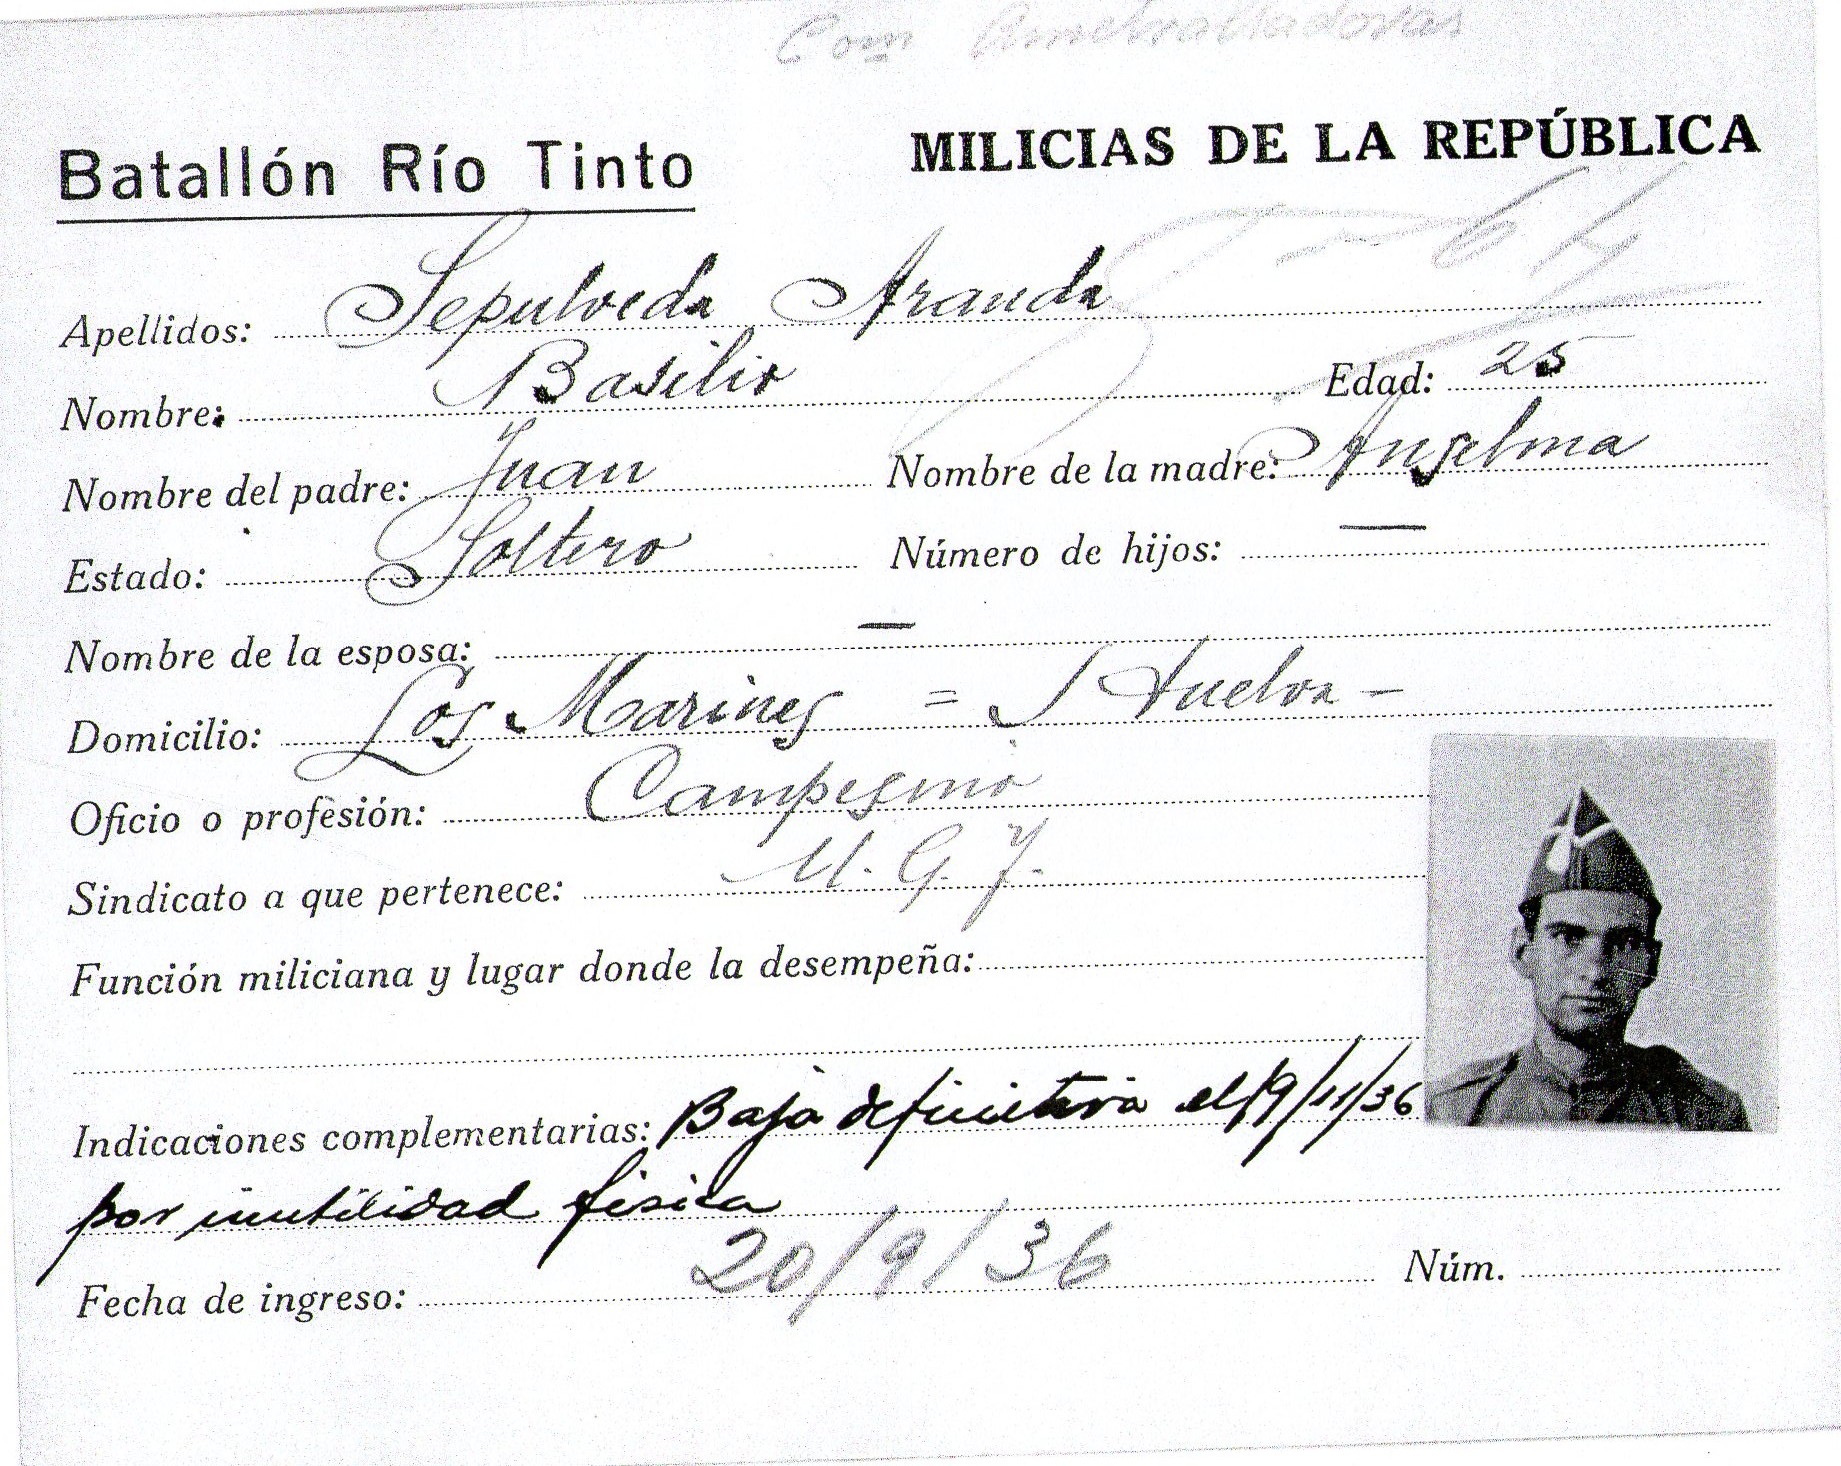 Comª Ametralladoras
Batallón Río Tinto MILICIAS DE LA REPÚBLICA
Apellidos: Sepulveda Aranda
Nombre: Basilio Edad: 25
Nombre del padre: Juan Nombre de la madre: Anselma
Estado: Soltero Número de hijos: —
Nombre de la esposa: —
Domicilio: Los Marines = Huelva -
Oficio o profesión: Campesino
Sindicato a que pertenece: U. G. T.
Función miliciana y lugar donde la desempeña:
Indicaciones complementarias: Baja definitiva el 19/11/36
por inutilidad fisica
Fecha de ingreso: 20/9/36 Núm.